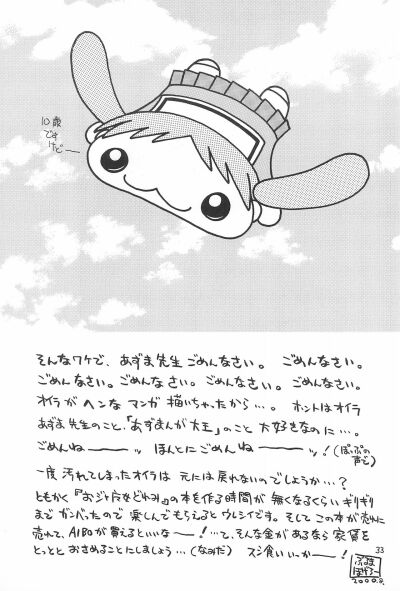 10歳
です
けど
そんなワケで、あずま先生ごめんなさい。 ごめんなさい。
ごめんなさい。ごめんなさい。ごめんなさい。ごめんなさい。
オイラがヘンなマンガ描いちゃったから…。ホントはオイラ
あずま先生のこと、「あずまんが大王」のこと大好きなのに…。
ごめんねー──ッ ほんとにごめんねー────ッ!(ぽっぷの
声で)
一度汚れてしまったオイラは元には戻れないのでしょうか…?
ともかく『おジャ魔などれみ』の本も作る時間が無くなるくらいギリギリ
までガンバッたので楽しんでもらえるとウレシイです。そしてこの本が売れに
売れて、AIBOが買えるといいなー!…て、そんな金があるなら家賃を
とっととおさめることにしましょう…(なみだ) スジ食いいっかー!
33
2000.8.